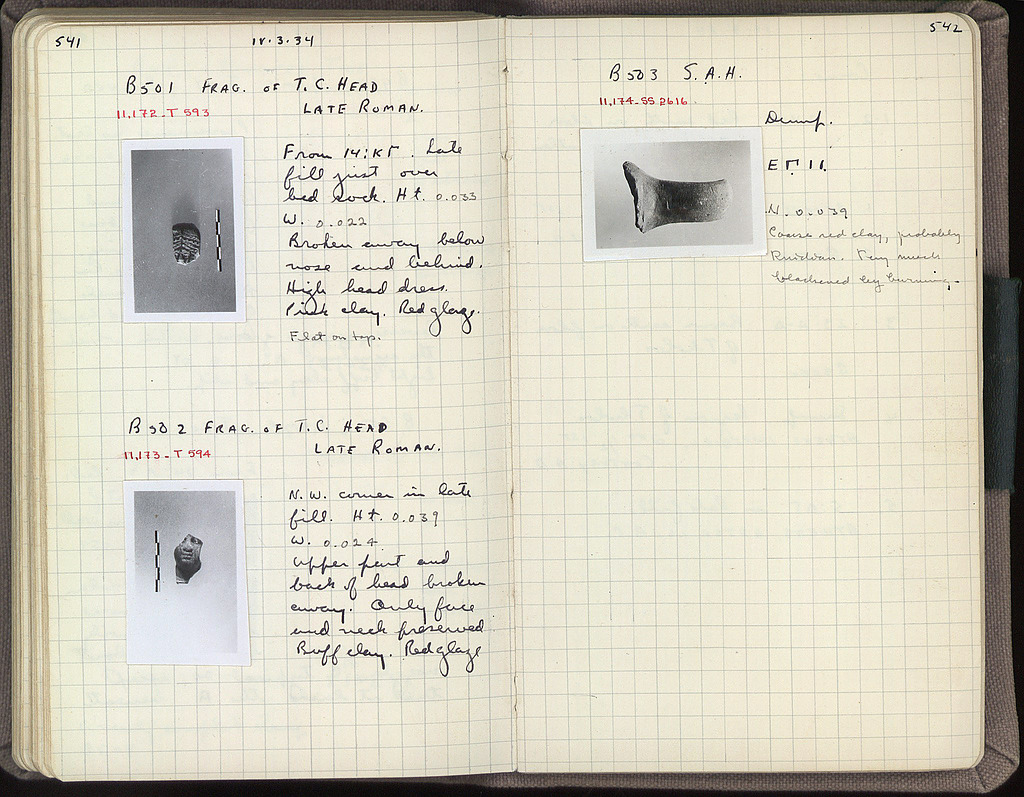 541
IV.3.34
B501 FRAG. OF T.C. HEAD
LATE ROMAN.
II,172-T 593
From 14:ΚΓ. Late
fill just over
bed rock. Ht. 0.033
W. 0.022
Broken away below
nose and behind.
High head dress.
Pink clay. Red glaze.
Flat on top.
B502 FRAG. OF T.C. HEAD
LATE ROMAN.
II,173-T 594
N.W. corner in late
fill. Ht. 0.039
W. 0.024
Upper part and
back of head broken
away. Only face
and neck preserved
Buff clay. Red glaze
542
B503 S.A.H.
II,174-SS 2616
Dump.
ΕΓ 11.
0.039
Coarse red clay, probably
Very much
blackened by burning.